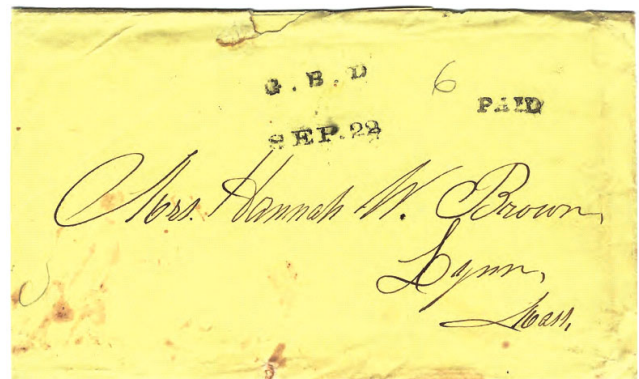 G. B. D 6
PAID
SEP. 22
Mrs. Hannah W. Brown,
Lynn,
Mass.